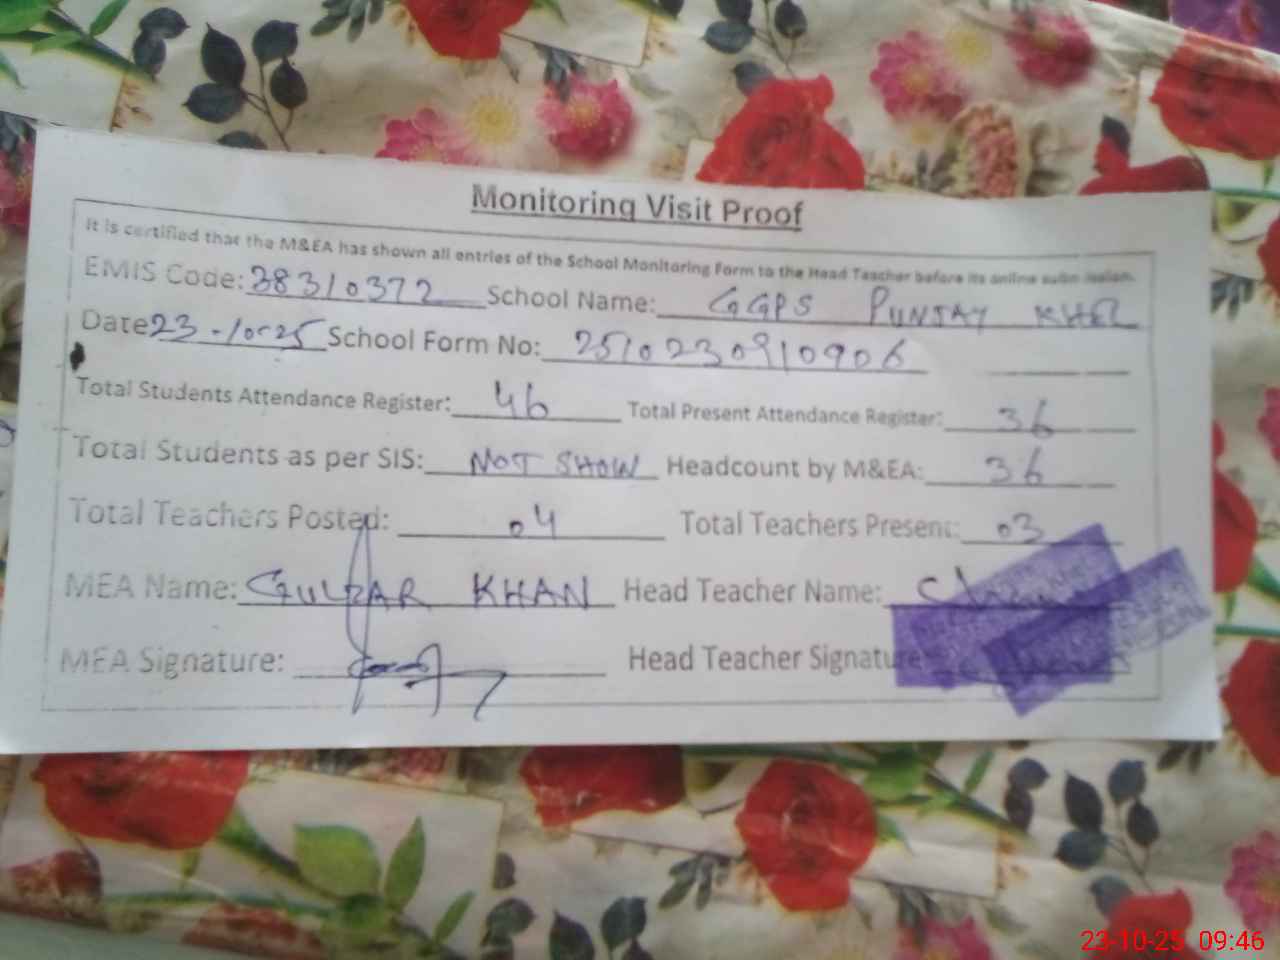 Monitoring Visit Proof
It is certified that the M&EA has shown all entries of the School Monitoring Form to the Head Teacher before its online submission.
EMIS Code: 38310372 School Name: GGPS PUNJAY KHEL
Date 23-10-25 School Form No: 2510230910906
Total Students Attendance Register: 46 Total Present Attendance Register: 36
Total Students as per SIS: NOT SHOW Headcount by M&EA: 36
Total Teachers Posted: 04 Total Teachers Present: 03
MEA Name: GULZAR KHAN Head Teacher Name:
MEA Signature: Head Teacher Signature:
23-10-25 09:46